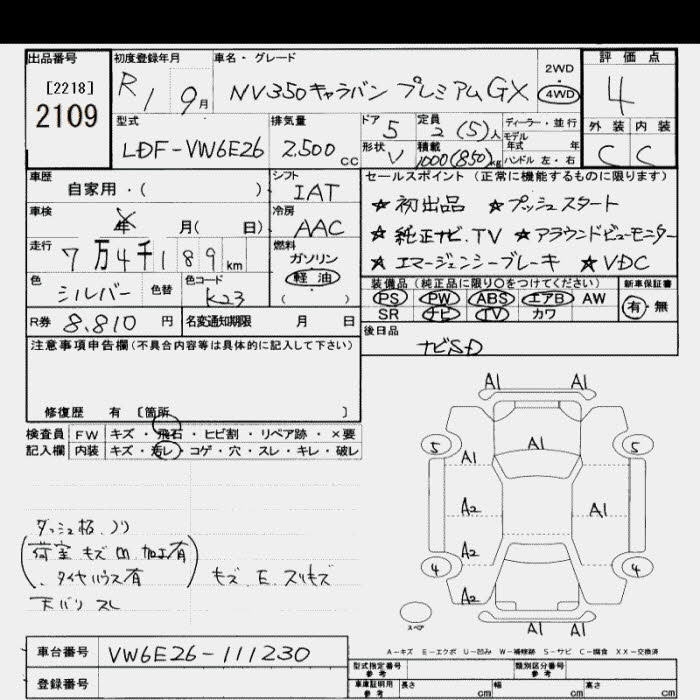 出品番号 初度登録年月 車名・グレード 評価点
[2218] 2109
R1 9月 NV350キャラバン プレミアムGX 2WD 4WD 4
型式 排気量 ドア 5 定員 2(5)人 ディーラー・並行 外装 内装
LDF-VW6E26 2,500cc 形状 V 積載 1000(850)kg モデル年式 年 ハンドル 左・右 C C
車歴 自家用・( ) シフト IAT セールスポイント(正常に機能するものに限ります)
★初出品 ★プッシュスタート
車検 年 月( 日) 冷房 AAC
★純正ナビ.TV ★アラウンドビューモニター
走行 7万4千189km 燃料 ガソリン 軽油 ( )
★エマージェンシーブレーキ ★VDC
色 シルバー 色替 色コード K23
装備品(純正品に限り○をつけてください) 新車保証書
PS PW ABS エアB AW 有・無
SR ナビ TV カワ
R券 8,810円 名変通知期限 月 日
後日品 ナビSD
注意事項申告欄(不具合内容等は具体的に記入して下さい)
修復歴 有 〔箇所 〕
検査員 FW キズ・飛石・ヒビ割・リペア跡・×要
記入欄 内装 キズ・汚レ・コゲ・穴・スレ・キレ・破レ
A1 A1
A1
5 5
A1
A2 A1
A2
4 4
A2
スペア
A1 A1
ダッシュ板.ノリ
(荷室 キズ 加工有
、タイヤハウス有) キズ.E.スリキズ
天バリ スレ
A-キズ E-エクボ U-凹み W-補修跡 S-サビ C-腐食 XX-交換済
車台番号 VW6E26-111230
型式指定番号 参考 類別区分番号 参考
登録番号
車庫証明用 参考 長さ cm 幅 cm 高さ cm